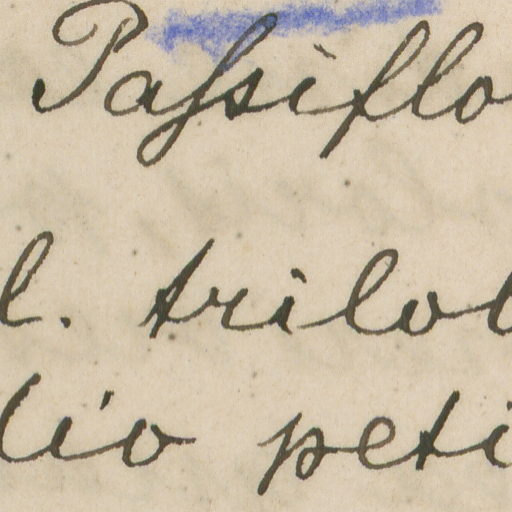 Paſsiflo
l. trilob
dio peti